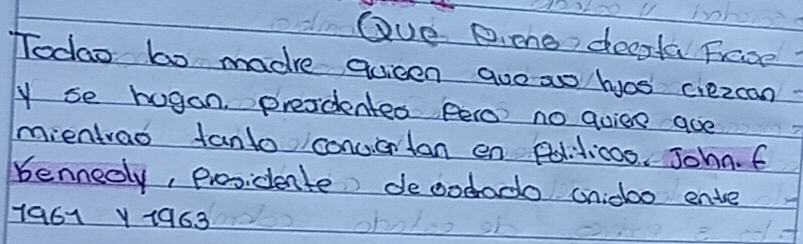 Que Piens deesta Frase
Todao lao madre quieen que sus hijos crezcan
y se hagan presidentes pero no quiere que
mientrao tanto conviertan en Politicos. John. F
Kennedy, Presidente de estado unidos entre
1961 y 1963